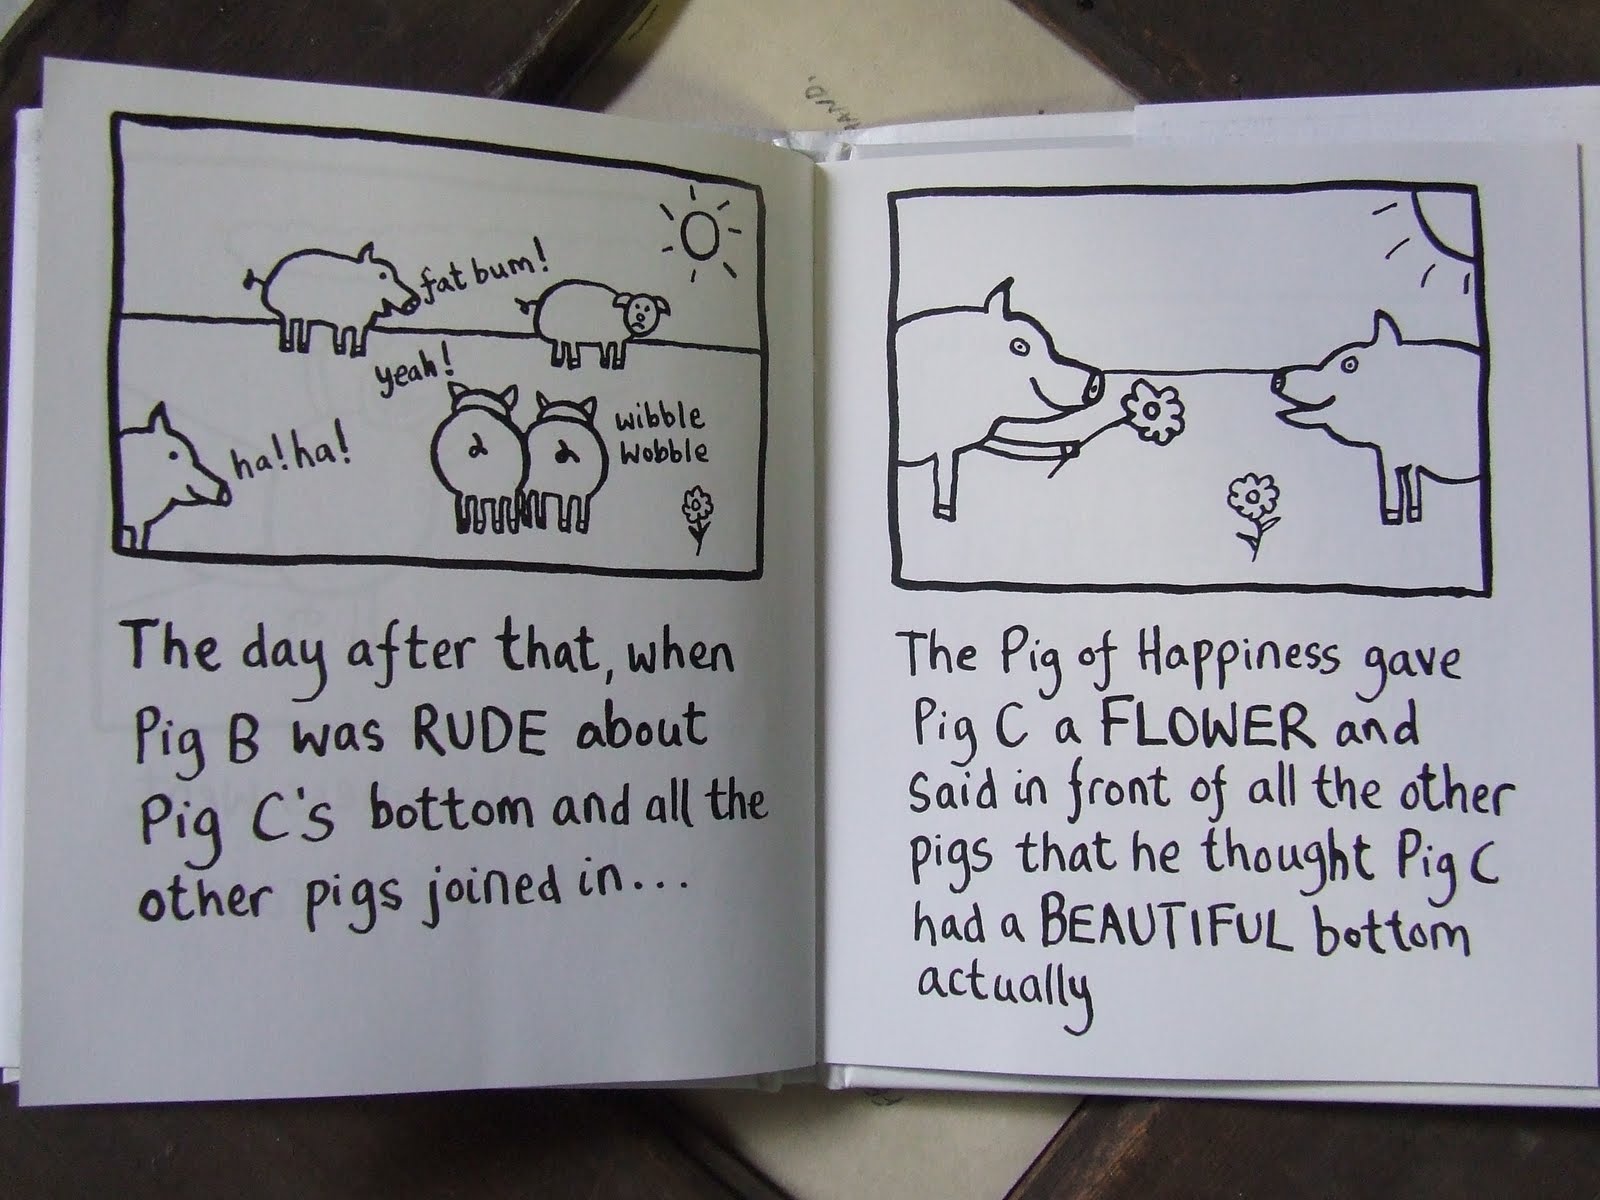 HAND.
fat bum!
yeah!
ha! ha!
wibble
wobble
The day after that, when
Pig B was RUDE about
Pig C's bottom and all the
other pigs joined in...
The Pig of Happiness gave
Pig C a FLOWER and
said in front of all the other
pigs that he thought Pig C
had a BEAUTIFUL bottom
actually